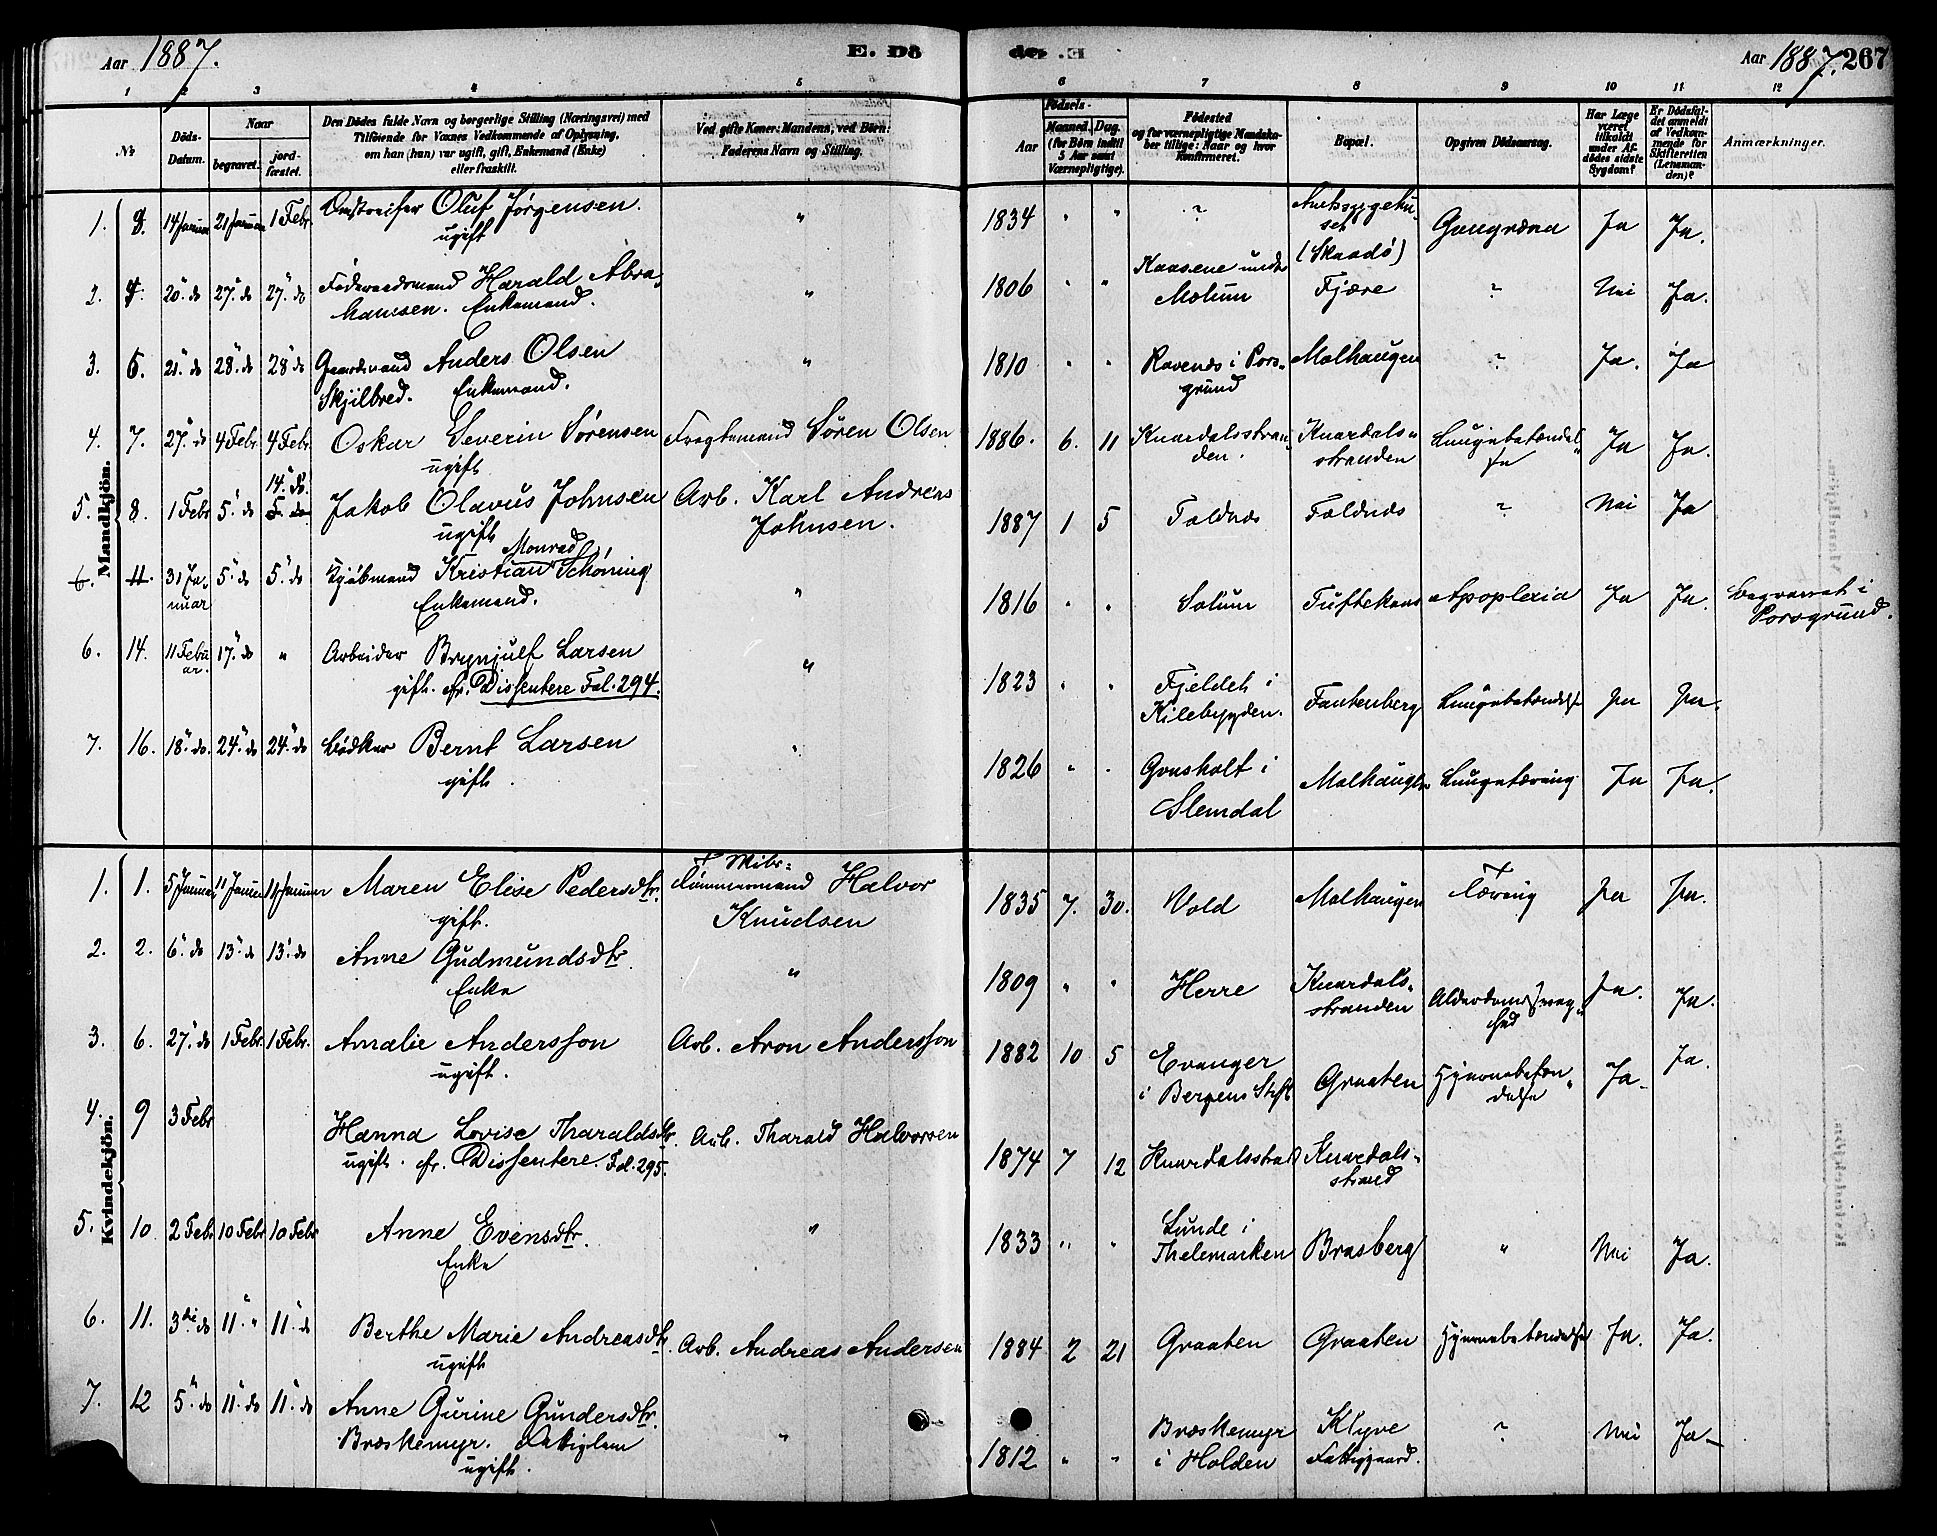 Aar 1887.
E. Dö
de. E
Aar 1887. 267
1 2 3 4 5
6 7 8 9 10 11 12
No
Döds-
Datum.
Naar
begravet.
jord-
fæstet.
Den Dödes fulde Navn og borgerlige Stilling (Næringsvei) med
Tilföiende for Voxnes Vedkommende af Oplysning,
om han (hun) var ugift, gift, Enkemand (Enke)
eller fraskilt.
Ved gifte Koner: Mandens, ved Börn:
Faderens Navn og Stilling.
Födsels-
Aar
Maaned. Dag.
(for Börn indtil
5 Aar samt
Værnepligtige).
Födested
og for værnepligtige Mandska-
ber tillige: Naar og hvor
konfirmeret.
Bopæl.
Opgiven Dödsaarsag.
Har Læge
været
tilkaldt
under Af-
dödes sidste
Sygdom?
Er Dödsfal-
det anmeldt
af Vedkom-
mende for
Skifteretten
(Lensman-
den)?
Anmærkninger.
Mandkjön.
1. 14 Januar 21 Januar 1 Febr. Oluf Jörgensen. " 1834 " " ? Amtssygehu-
ugift set Gangræna Ja Ja.
(Skaadö)
2. 20" do 27" do 27" do Föderaadsmand Harald Abra- " 1806 " " Kaasene under Fjære ? Nei Ja.
hamsen. Enkemand. Mælum
3. 21" do 28" do 28" do Gaardmand Anders Olsen " 1810 " " Ravnes i Pors- Molhaugen ? Ja. Ja
Skjilbred. Enkemand. grund
4. 7. 27" do 4 Febr. 4 Febr. Oskar Severin Sörensen Fragtemand Sören Olsen 1886. 6. 11 Knardalsstran- Knardals- Lungebetændel- Ja Ja.
ugift den. stranden se
14" do.
5. 8. 1 Febr 5" do Jakob Olavus Johnsen Arb. Karl Andreas 1887 1 5 Foldnes Foldnes ? Nei Ja
ugift Johnsen.
Monrad
6. 11. 31 Ja- 5" do 5" do Kjöbmand Kristian Schöning " 1816 " " Solum Tuftekaas Apoplexia Ja Ja. Begravet i
nuar Enkemand. Porsgrund.
6. 14. 11 Febru- 17" do " Arbeider Brynjulf Larsen " 1823 " " Fjeldet i Fantenberg Lungebetændelse Ja Ja.
ar. gift. cfr. Dissentere Fol. 294. Kilebygden.
7. 16. 18" do. 24" do 24" do Bödker Bernt Larsen " 1826 " " Grasholt i Molhaugen Lungetæring Ja Ja.
gift. Slemdal
Kvindekjön.
1. 1. 5 Januar 11 Januar 11 Januar Maren Elise Pedersdtr. Tömmermand Halvor 1835 7. 30. Vold Molhaugen Tæring Ja Ja.
gift. Knudsen
2. 2. 6" do 13" do 13" do Anne Gudmundsdtr. " 1809 " " Herre Knardals- Alderdomssvag- Ja. Ja.
Enke stranden hed
3. 6. 27" do 1 Febr. 1 Febr. Amalie Andersson Arb. Aron Andersson 1882 10 5 Evanger Graaten Hjernebetæn- Ja. Ja.
ugift. i Bergens Stift delse
4. 9 3 Febr Hanna Lovise Tharaldsdtr. Arb. Tharald Halvorsen 1874 7 12 Knardalsstrand Knardals-
ugift. cfr. Dissentere. Fol. 295. strand
5. 10. 2 Febr 10 Febr 10 Febr Anne Evensdtr. " 1833 " " Lunde i Brasberg " Nei Ja.
Enke Thelemarken
6. 11. 3die do 11" " 11" do Berthe Marie Andreasdtr. Arb. Andreas Andersen 1884 2 21 Graaten Graaten Hjernebetændelse Ja. Ja.
ugift
7. 12 5" do 11" do 11" do Anne Gurine Gundersdtr. " 1812 " " Bræskemyr Klyve ? Nei Ja
Bræskemyr. Fattiglem i Holden Fattiggaard.
ugift.